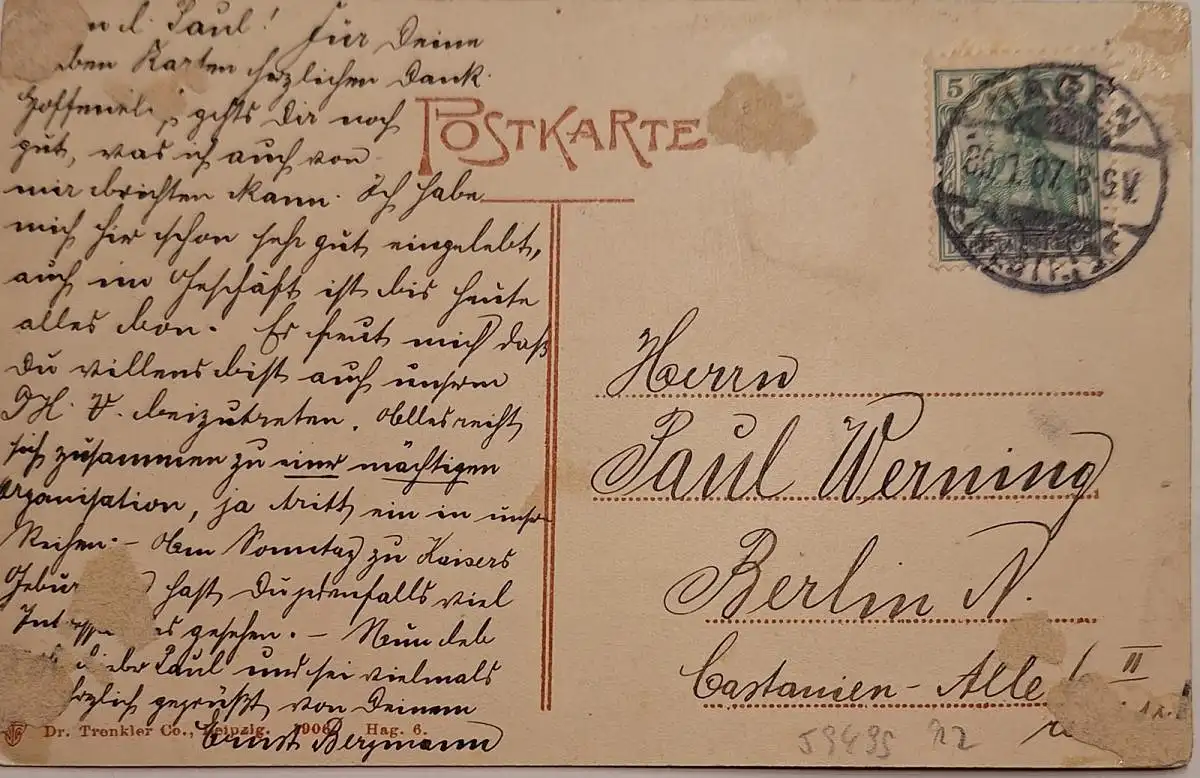 Paul! Für Deine
Karten herzlichen Dank.
gehts Dir noch
gut, was ich auch von
mir berichten kann. Ich habe
mich hier schon sehr gut eingelebt,
auch im Geschäft ist bis heute
alles bon. Es freut mich daß
Du willens bist auch unserem
D.H.V. beizutreten. Alles reiht
sich zusammen zu einer mächtigen
Organisation, ja tritt ein in unsere
Reihen. – Am Sonntag zu Kaisers
hast Du jedenfalls viel
gesehen. – Nun leb
Paul und sei vielmals
herzlich gegrüßt von Deinem
Ernst Bergmann
POSTKARTE
5
HAGEN
07
Herrn
Paul Werning
Berlin N.
Castanien-Alle
II
Dr. Trenkler Co., Leipzig. 1906 Hag. 6.
59495